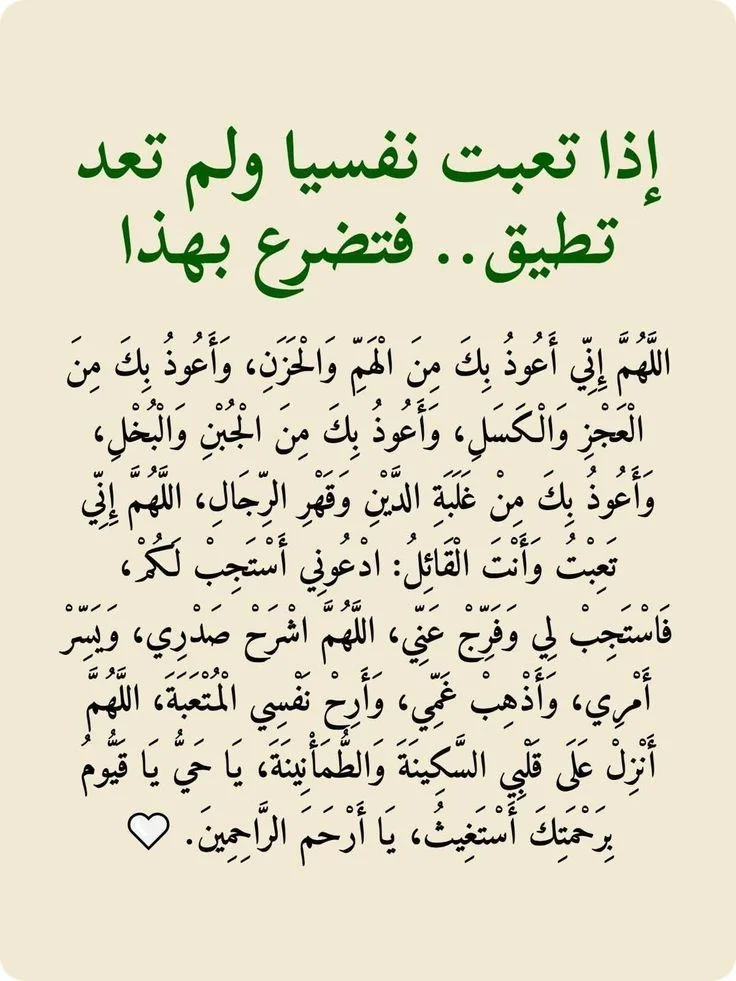 إذا تعبت نفسيا ولم تعد
تطيق.. فتضرع بهذا
اللَّهُمَّ إِنِّي أَعُوذُ بِكَ مِنَ الْهَمِّ وَالْحَزَنِ، وَأَعُوذُ بِكَ مِنَ
الْعَجْزِ وَالْكَسَلِ، وَأَعُوذُ بِكَ مِنَ الْجُبْنِ وَالْبُخْلِ،
وَأَعُوذُ بِكَ مِنْ غَلَبَةِ الدَّيْنِ وَقَهْرِ الرِّجَالِ، اللَّهُمَّ إِنِّي
تَعِبْتُ وَأَنْتَ الْقَائِلُ: ادْعُونِي أَسْتَجِبْ لَكُمْ،
فَاسْتَجِبْ لِي وَفَرِّجْ عَنِّي، اللَّهُمَّ اشْرَحْ صَدْرِي، وَيَسِّرْ
أَمْرِي، وَأَذْهِبْ غَمِّي، وَأَرِحْ نَفْسِي الْمُتْعَبَةَ، اللَّهُمَّ
أَنْزِلْ عَلَى قَلْبِي السَّكِينَةَ وَالطُّمَأْنِينَةَ، يَا حَيُّ يَا قَيُّومُ
بِرَحْمَتِكَ أَسْتَغِيثُ، يَا أَرْحَمَ الرَّاحِمِينَ. 🤍